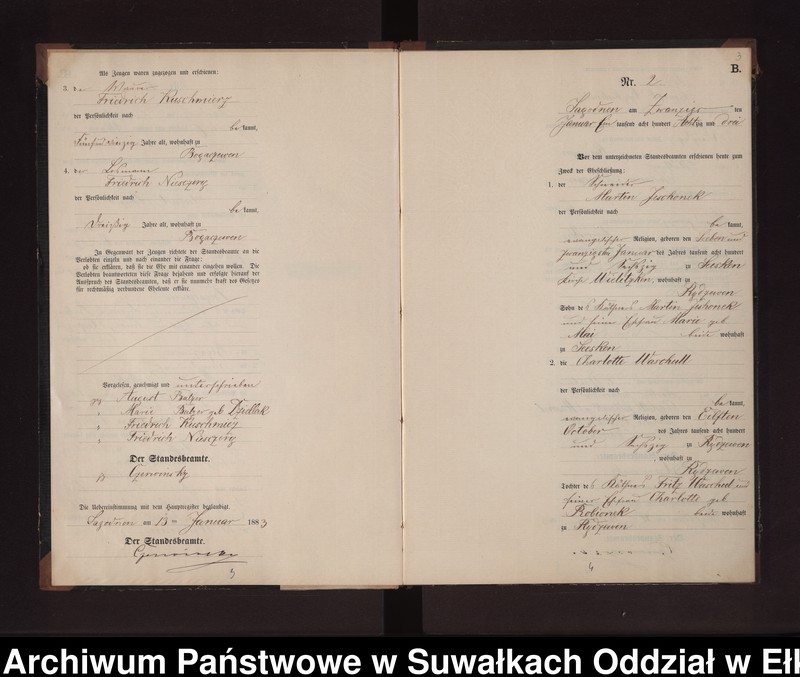 Als Zeugen waren zugezogen und erschienen:
3. der
Friedrich Kuschmierz
der Persönlichkeit nach
be kannt,
Jahre alt, wohnhaft zu
Rogarzewen
4. der Losmann
Friedrich Nasgerz
der Persönlichkeit nach
be kannt,
dreißig Jahre alt, wohnhaft zu
In Gegenwart der Zeugen richtete der Standesbeamte an die
Verlobten einzeln und nach einander die Frage:
ob sie erklären, daß sie die Ehe mit einander eingehen wollen. Die
Verlobten beantworteten diese Frage bejahend und erfolgte hierauf der
Ausspruch des Standesbeamten, daß er sie nunmehr kraft des Gesetzes
für rechtmäßig verbundene Eheleute erkläre.
Vorgelesen, genehmigt und unterschrieben
gez August Balzer
" Marie Balzer geb Dzidlak
" Friedrich Kuschmierz
" Friedrich
Der Standesbeamte.
gz Czerwinsky
Die Uebereinstimmung mit dem Hauptregister beglaubigt.
am 13ten Januar 1883
Der Standesbeamte.
5
B.
Nr. 2
am Zwanzigsten
Januar Ein tausend acht hundert achtzig und drei
Vor dem unterzeichneten Standesbeamten erschienen heute zum
Zweck der Eheschließung:
1. der Schneider
Martin Jeschonek
der Persönlichkeit nach
be kannt,
evangelischer Religion, geboren den Sieben und
zwanzigsten Januar des Jahres tausend acht hundert
und sechszig zu Seesken
Kreis, wohnhaft zu
Rydzewen
Sohn des Käthners Martin
und seiner Ehefrau Marie geb
beide wohnhaft
zu Seesken
2. die Charlotte Waschull
der Persönlichkeit nach
be kannt,
evangelischer Religion, geboren den Eilften
October des Jahres tausend acht hundert
und sechszig zu Rydzewen
, wohnhaft zu
Rydzewen
Tochter des Käthners Fritz und
seiner Ehefrau Charlotte geb
beide wohnhaft
zu Rydzewen
Archiwum Państwowe w Suwałkach Oddział w Ełk